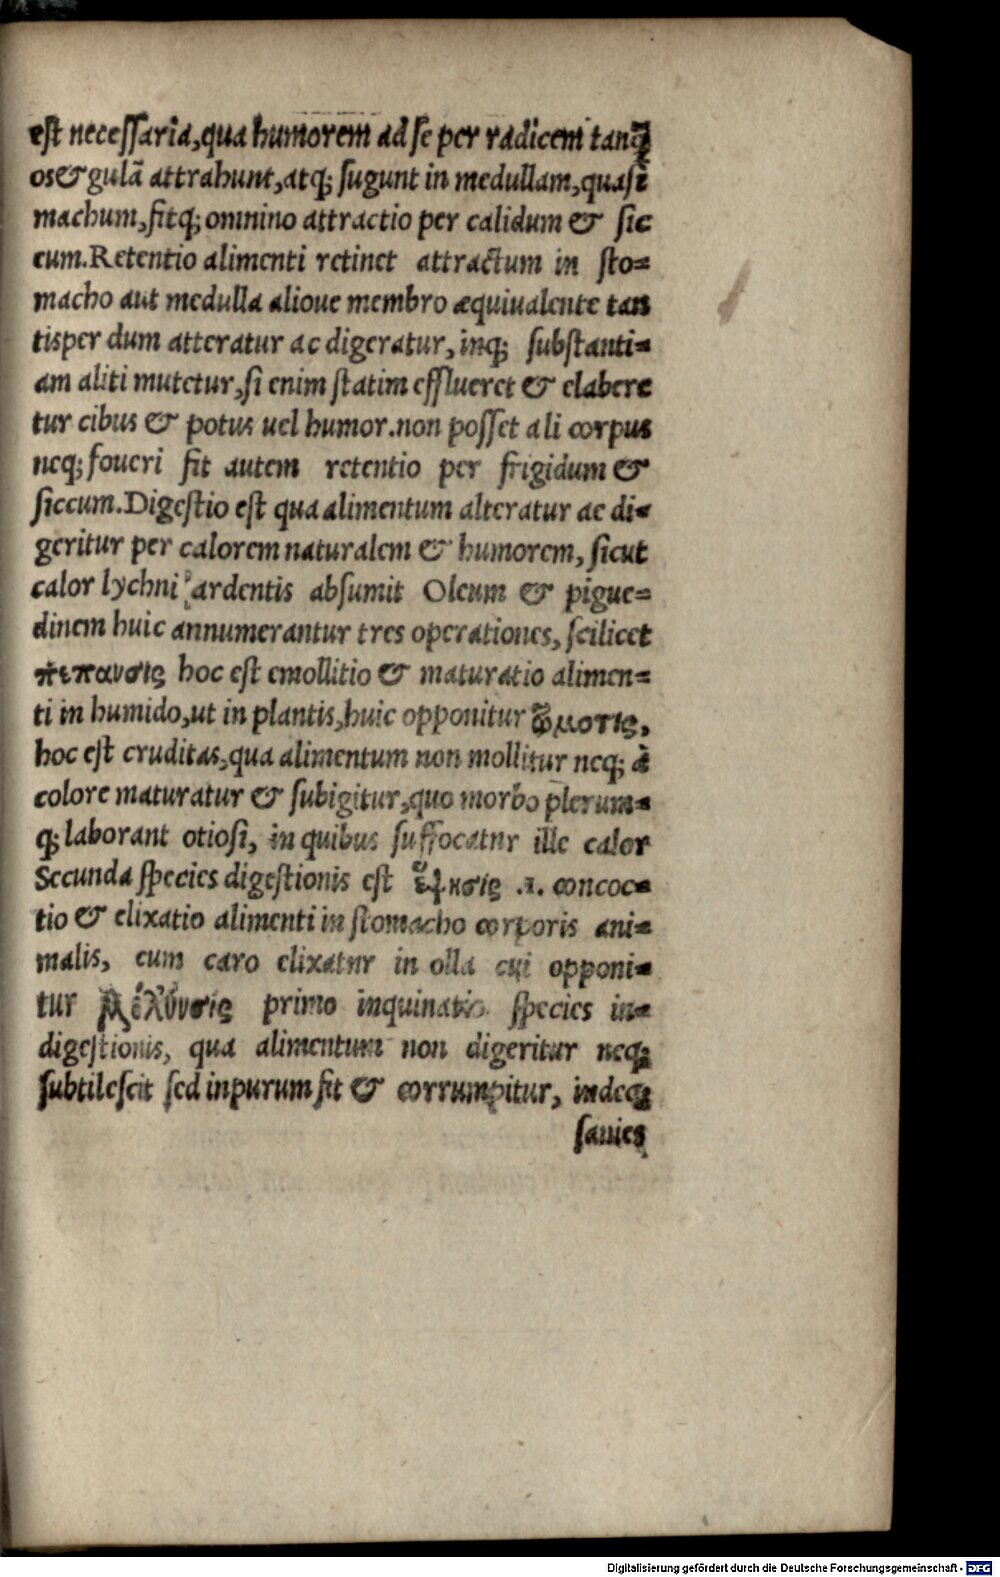 est necessaria,qua humorem ad se per radicem tanq̃
os& gulã attrahunt,atq; sugunt in medullam,quasi
machum,fitq; omnino attractio per calidum & sic
cum.Retentio alimenti retinet attractum in sto=
macho aut medulla alioue membro æquiualente tan
tisper dum atteratur ac digeratur, inq; substanti=
am aliti mutetur,si enim statim efflueret & elabere
tur cibus & potus uel humor.non posset ali corpus
neq; foueri fit autem retentio per frigidum &
siccum.Digestio est qua alimentum alteratur ac di=
geritur per calorem naturalem & humorem, sicut
calor lychni ardentis absumit Oleum & pigue=
dinem huic annumerantur tres operationes, scilicet
πέπανσις hoc est emollitio & maturatio alimen=
ti in humido,ut in plantis,huic opponitur
hoc est cruditas,qua alimentum non mollitur neq; à
colore maturatur & subigitur,quo morbo plerum=
q; laborant otiosi, in quibus suffocatnr ille calor
Secunda species digestionis est .i. concoc=
tio & elixatio alimenti in stomacho corporis ani=
malis, cum caro elixatnr in olla cui opponi=
tur primo inquinatio species in=
digestionis, qua alimentum non digeritur neq;
subtilescit sed inpurum fit & corrumpitur, indeq;
sanies
Digitalisierung gefördert durch die Deutsche Forschungsgemeinschaft - DFG